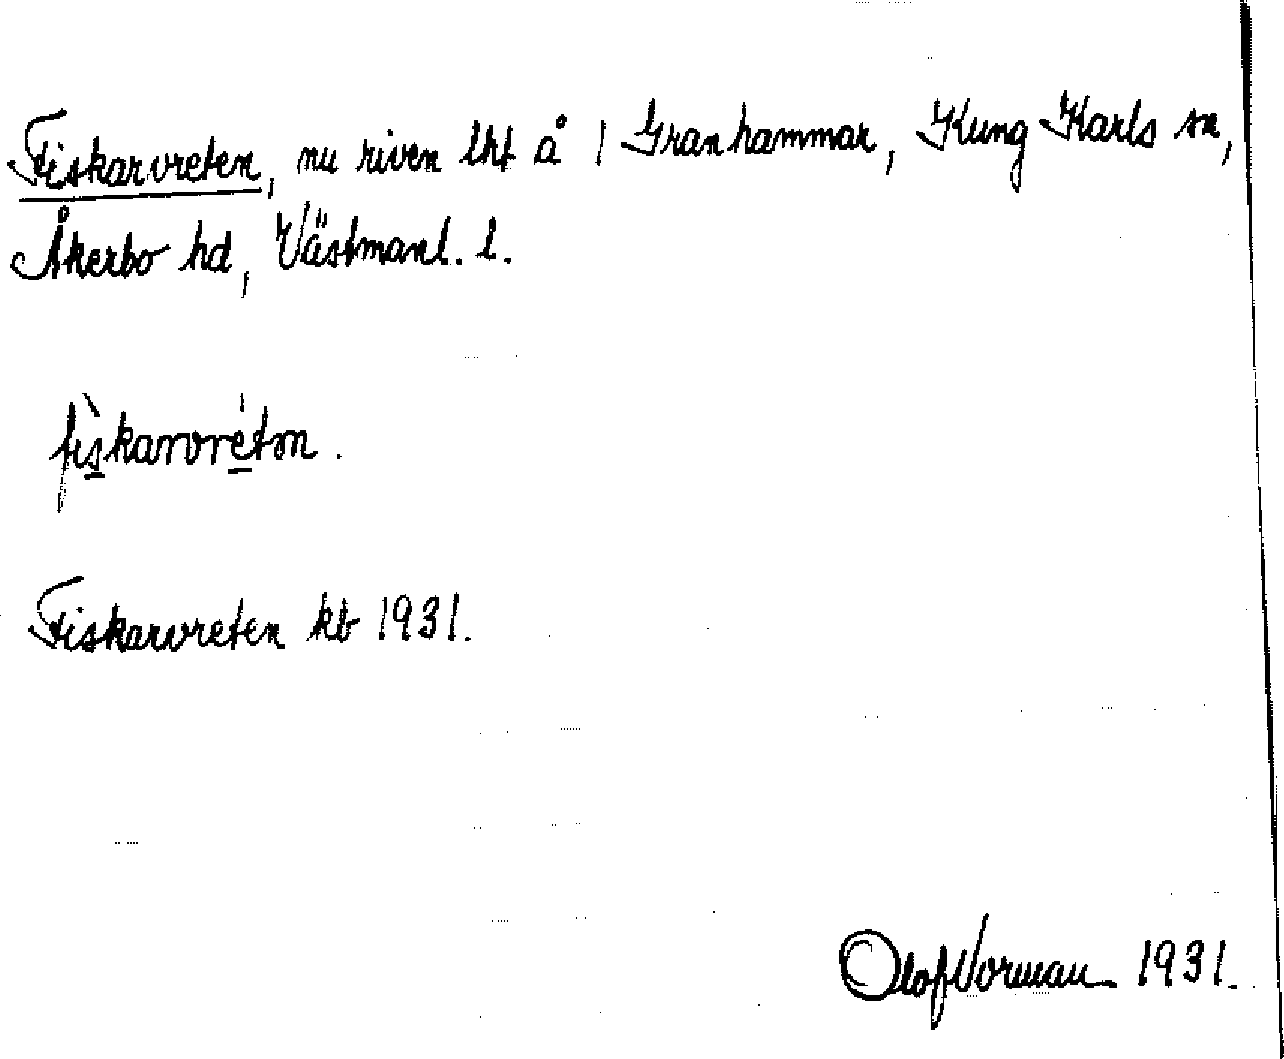 Fiskarvreten, nu riven lht å 1 Granhammar, Kung Karls sn,
Åkerbo hd, Västmanl. l.
fìskarvrétən.
Fiskarvreten kb 1931.
Olof Norman 1931.